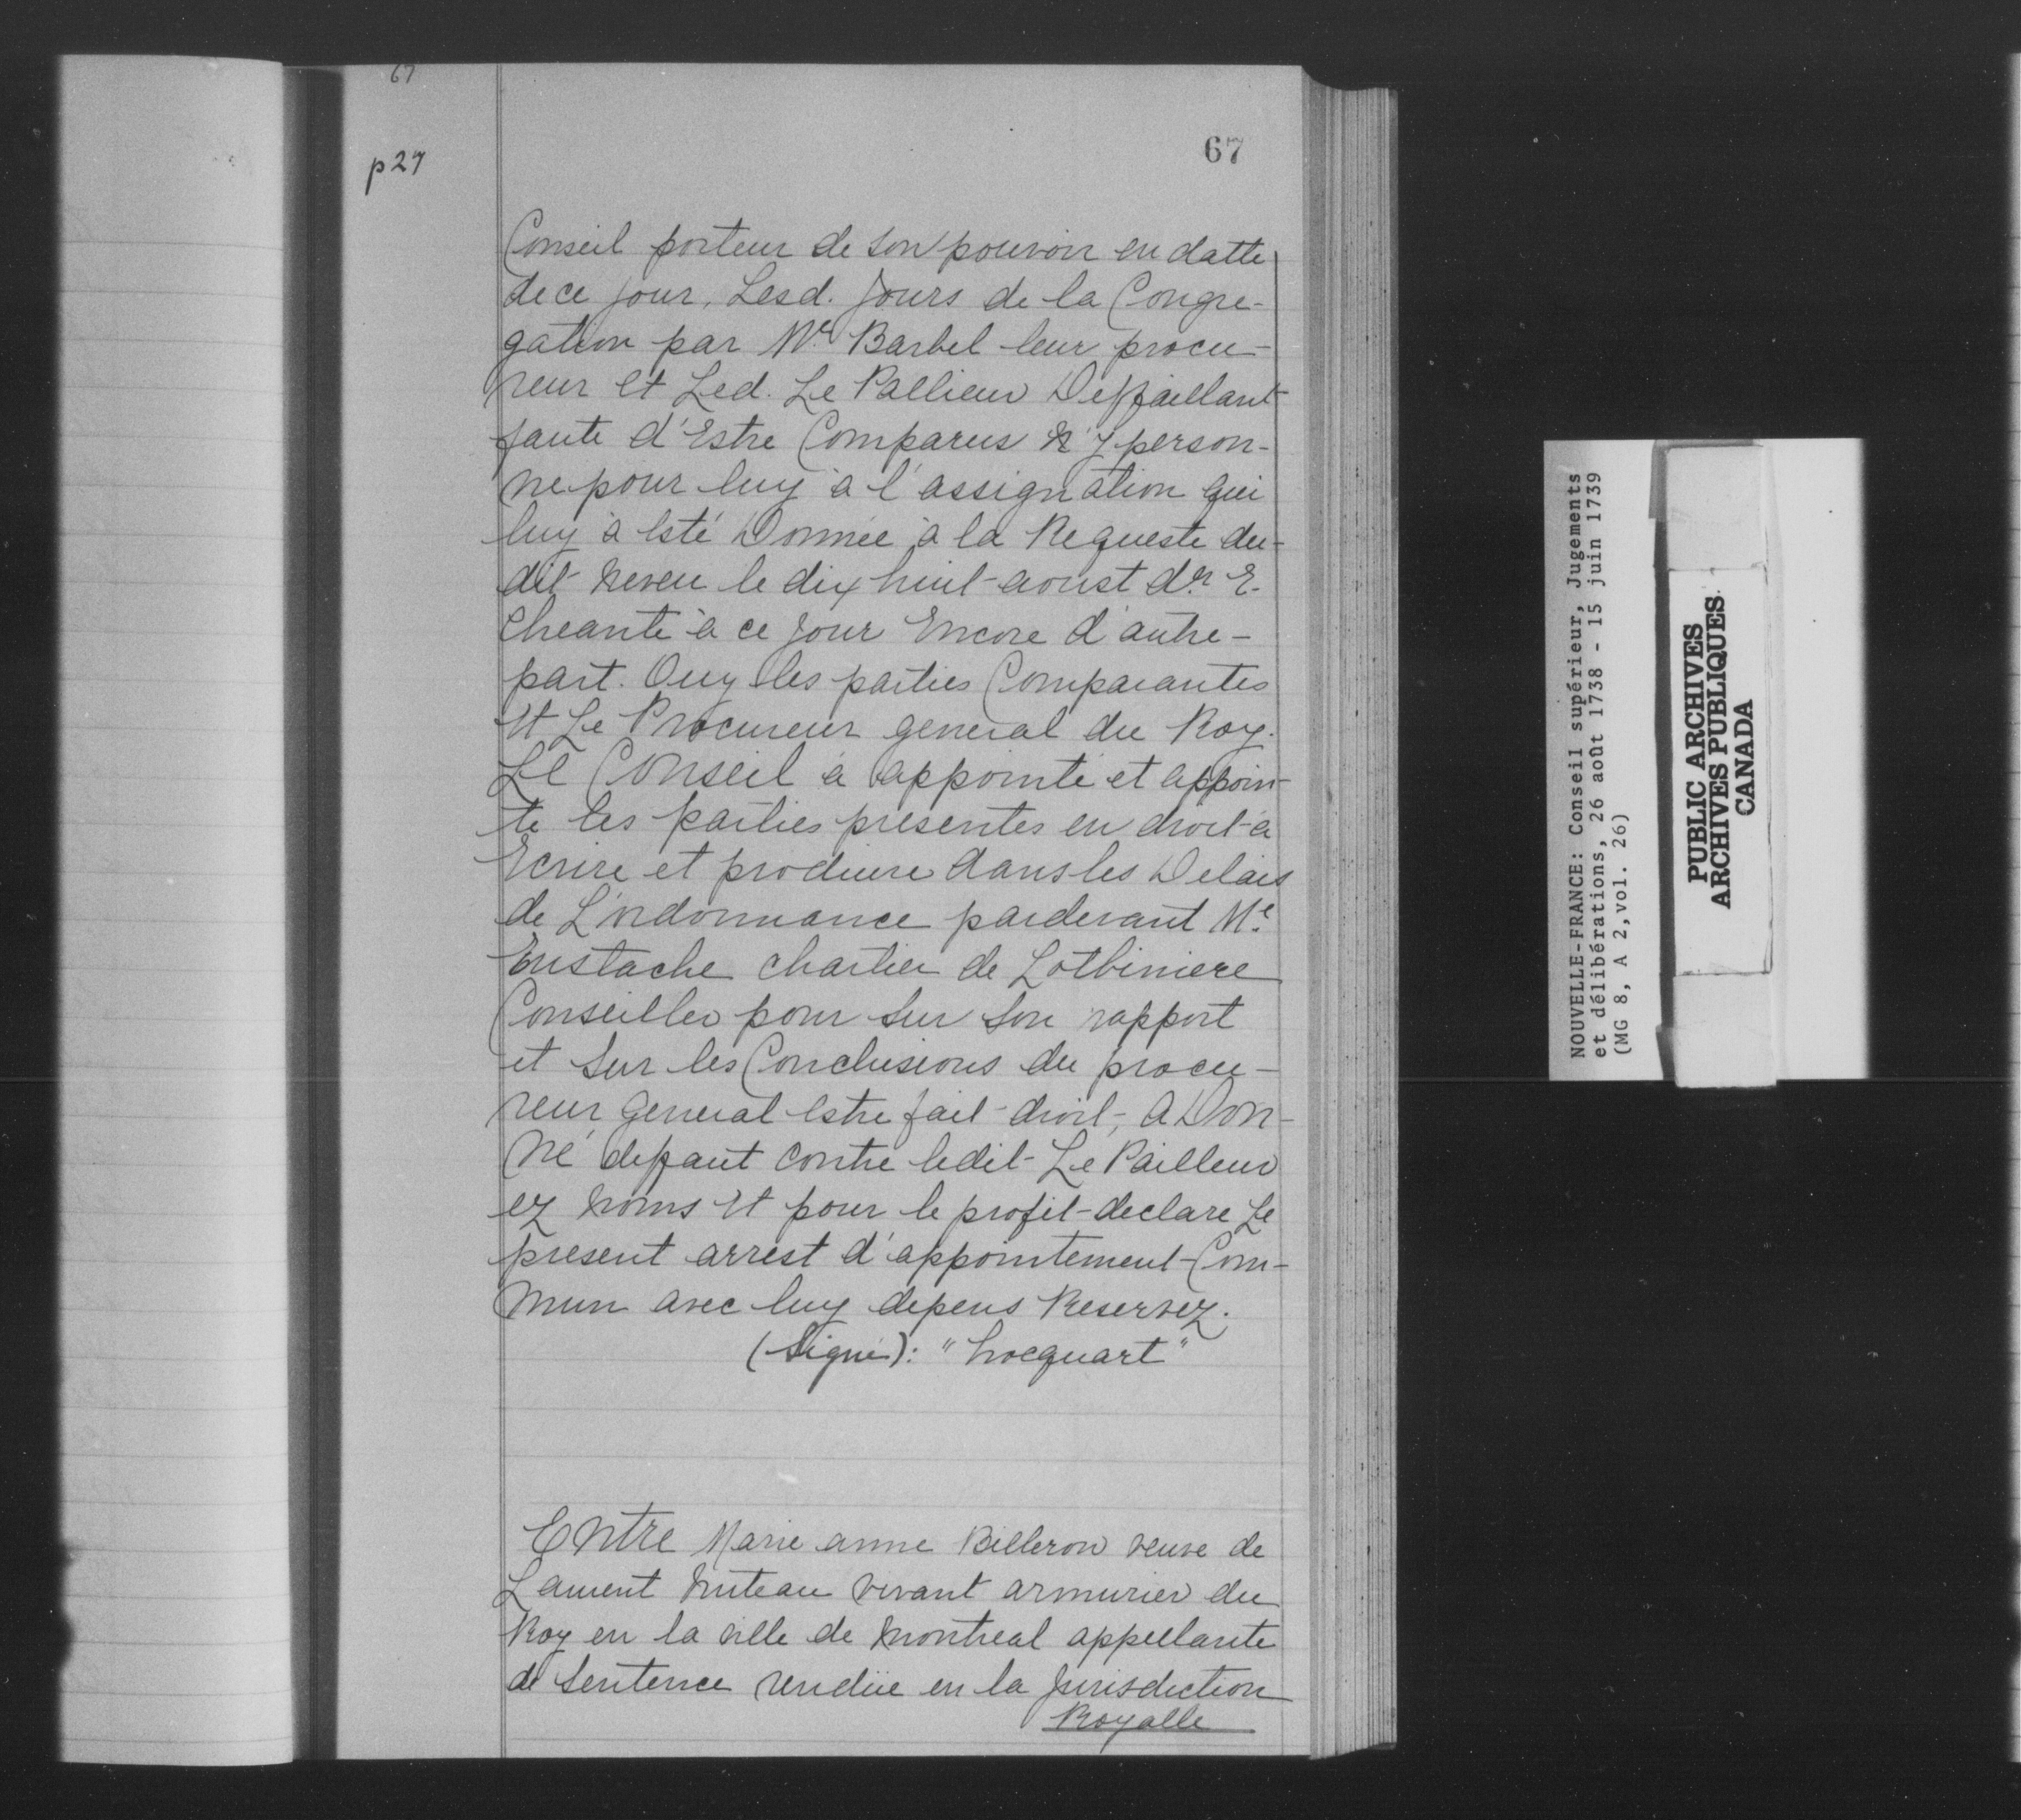 67
p 27
67
Conseil porteur de son pouvoir en datte
de ce jour, Lesd. Jours de la Congre-
gation par Me Barbel leur procu-
reur et Led. Le Pallieur Deffaillant
faute d'Estre Comparus N'y person-
ne pour luy à l'assignation qui
luy à esté Donnée à la Requeste du-
dit Neveu le dix huit aoust dr. E-
cheante à ce jour Encore d'autre-
part. Ouy les parties Comparantes
Et Le Procureur general du Roy.
Le Conseil a appointé et appoin-
te les parties presentes en droit a
Ecrire et produire dans les Delais
de L'ordonnance pardevant Me.
Eustache chartier de Lotbiniere
Conseiller pour sur son rapport
et sur les Conclusions du procu-
reur general estre fait droit, a Don-
né deffaut contre ledit Le Pailleur
ez noms Et pour le profit declare Le
present arrest d'appointement Com-
mun avec luy depens Reservez.
(Signé): "hocquart"
Entre Marie anne Billeron veuve de
Laurent truteau vivant armurier du
Roy en la ville de Montreal appellante
de Sentence rendüe en la Jurisdiction
Royalle
NOUVELLE-FRANCE: Conseil supérieur, Jugements
et délibérations, 26 août 1738 - 15 juin 1739
(MG 8, A 2,vol. 26)
PUBLIC ARCHIVES
ARCHIVES PUBLIQUES
CANADA